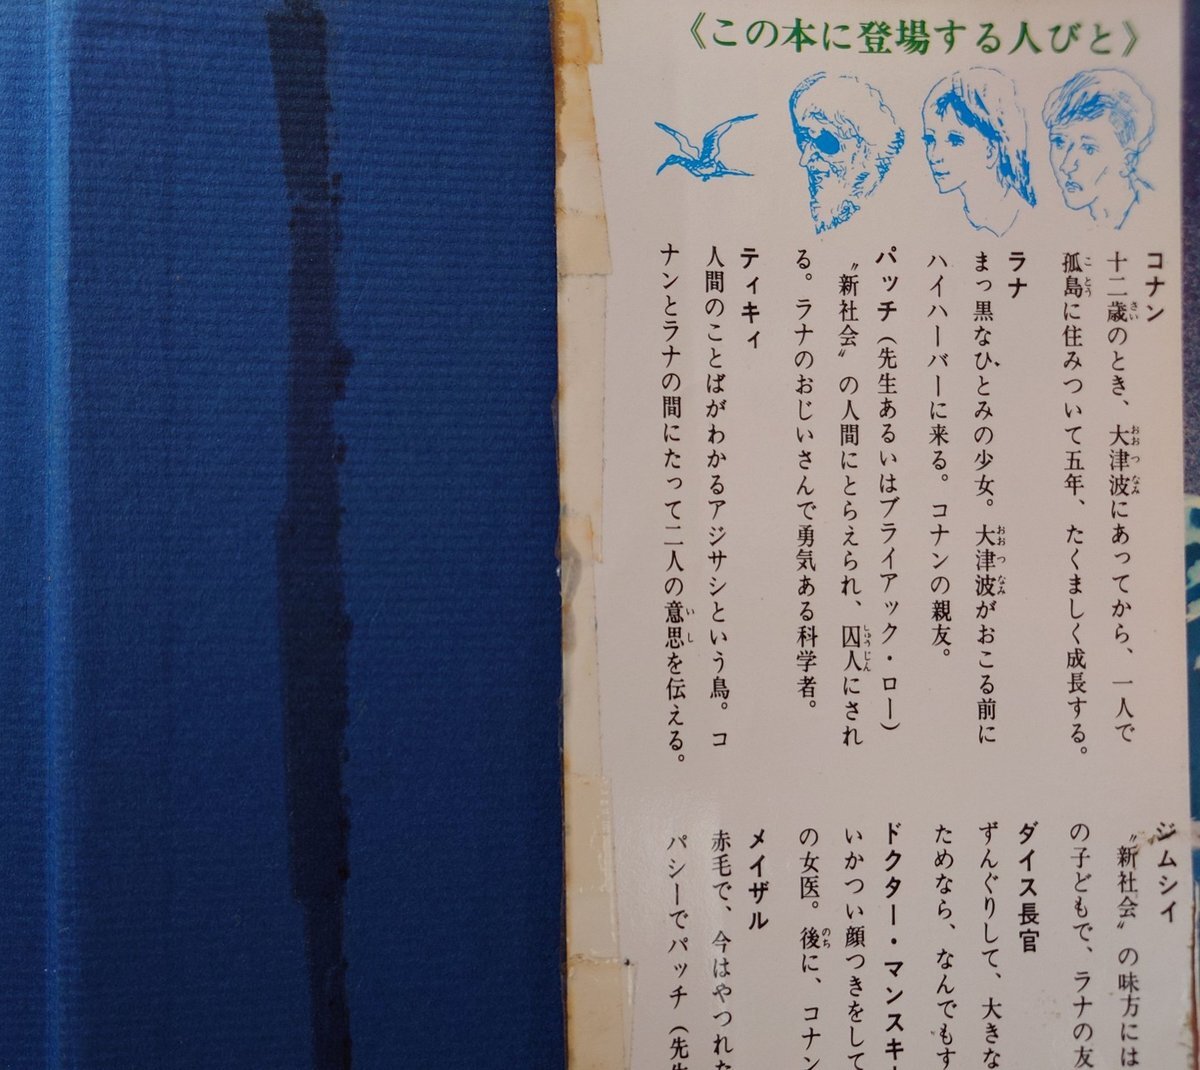 《この本に登場する人びと》
コナン
十二歳のとき、大津波にあってから、一人で
孤島に住みついて五年、たくましく成長する。
ラナ
まっ黒なひとみの少女。大津波がおこる前に
ハイハーバーに来る。コナンの親友。
パッチ(先生あるいはブライアック・ロー)
〝新社会〟の人間にとらえられ、囚人にされ
る。ラナのおじいさんで勇気ある科学者。
ティキィ
人間のことばがわかるアジサシという鳥。コ
ナンとラナの間にたって二人の意思を伝える。
ジムシイ
〝新社会〟の味方には
の子どもで、ラナの友
ダイス長官
ずんぐりして、大きな
ためなら、なんでもす
ドクター・マンスキー
いかつい顔つきをして
の女医。後に、コナン
メイザル
赤毛で、今はやつれた
パシーでパッチ(先生